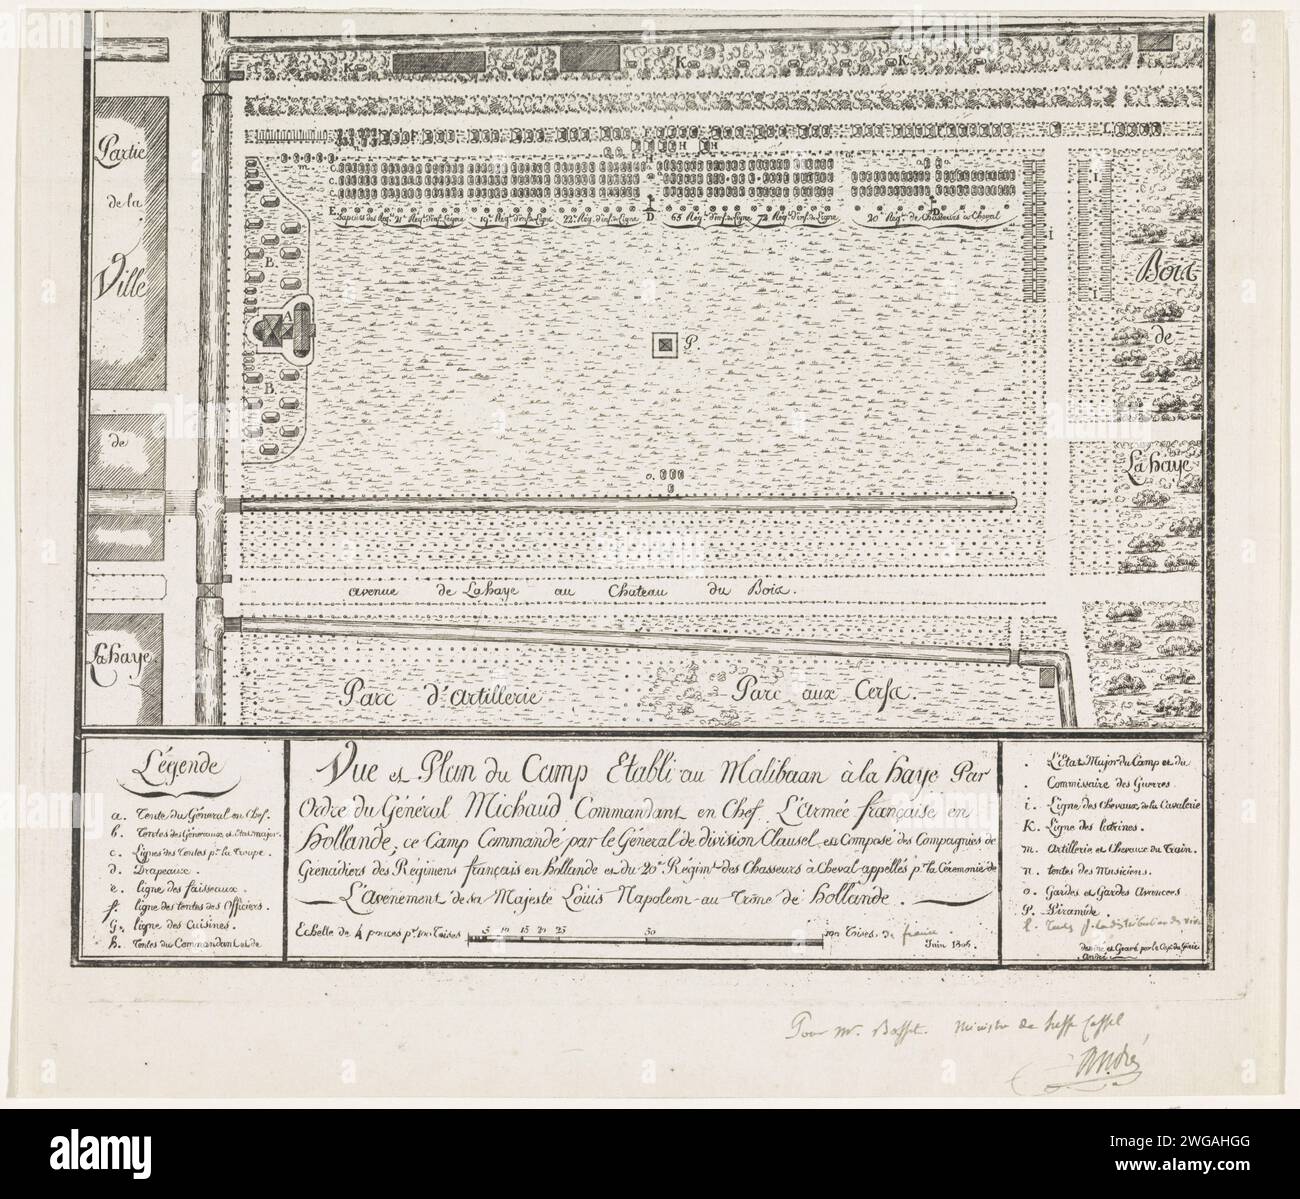 Partie
de la
Ville
de
Lahaye.
K
K
H
H
H
L
m.
C.
C.
C.
E
D
D
Sapeurs des Reg. 21e Régt. d'inf. Legère
19e Régt. d'inf. de Ligne
22e Régt. d'inf. de Ligne
65 Régt. d'inf. de Ligne
72 Régt. d'inf. de Ligne
20 Régt. de Chasseurs à Cheval
B.
A
B.
P.
I
I
i
Bois
de
Lahaye
o.
avenue de Lahaye au Chateau du Bois.
Parc d'Artillerie
Parc aux Cerfs.
Légende
a. Tente du Général en Chef.
b. Tentes des Généraux et Etat major.
c. Lignes des Tentes pr. la Troupe.
d. Drapeaux.
e. ligne des faisseaux.
f. ligne des tentes des Officiers.
G. ligne des Cuisines.
h. Tentes du Commandant et de
Vue et Plan du Camp Etabli au Malibaan à la haye Par
Ordre du Général Michaud Commandant en Chef L'Armée française en
Hollande; ce Camp Commandé par le Général de division Clausel, est Composé des Compagnies de
Grenadiers des Régimens français en hollande et du 20e Régimt. des Chasseurs à Cheval appellés pr. la Céremonie de
L'Avenement de sa Majeste Louis Napoleon au Trône de hollande.
Echelle de 4 pouces pr. 100 Toises
5 10 15 20 25 50
100 Toises, de france.
Juin 1806.
. L'Etat Major du Camp et du
. Commissaire des Guerres.
i. Ligne des Chevaux de la Cavalerie
K. Ligne des latrines.
m. Artillerie et Chevaux du Train.
n. tentes des Musiciens.
o. Gardes et Gardes Avancees
P. Piramide.
l. Tentes pr. la distribution des vivres
dessiné et Gravé par le Cape. du Génie
André
Pour Mr. Bosset. Ministre de hesse Cassel
André
alamy
Image ID: 2WGAHGG
www.alamy.com